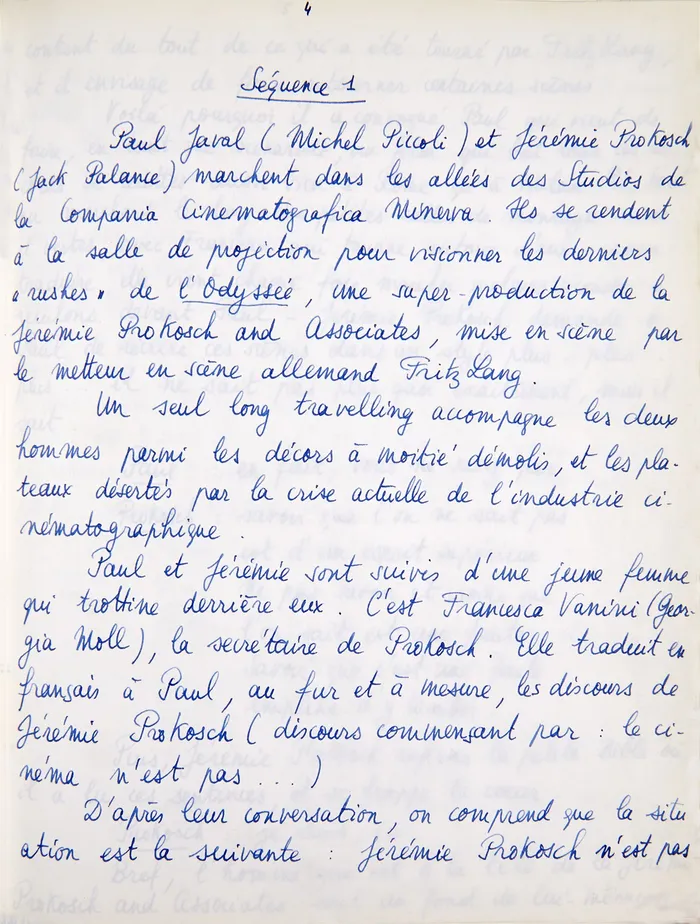 4
Séquence 1
Paul Javal ( Michel Piccoli ) et Jérémie Prokosch
( Jack Palance ) marchent dans les allées des Studios de
la Compania Cinematografica Minerva Ils se rendent
à la salle de projection pour visionner les derniers
"rushes" de l'Odysséé, une super-production de la
Jérémie Prokosch and Associates, mise en scène par
le metteur en scène allemand Fritz Lang.
Un seul long travelling accompagne les deux
hommes parmi les décors à moitié démolis, et les pla-
teaux désertés par la crise actuelle de l'industrie ci-
nématographique.
Paul et Jérémie sont suivis d'une jeune femme
qui trottine derrière eux. C'est Francesca Vanini (Geor-
gia Moll), la secrétaire de Prokosch. Elle traduit en
français à Paul, au fur et à mesure, les discours de
Jérémie Prokosch ( discours commençant par : le ci-
néma n'est pas .... )
D'après leur conversation, on comprend que la situ
ation est la suivante : Jérémie Prokosch n'est pas